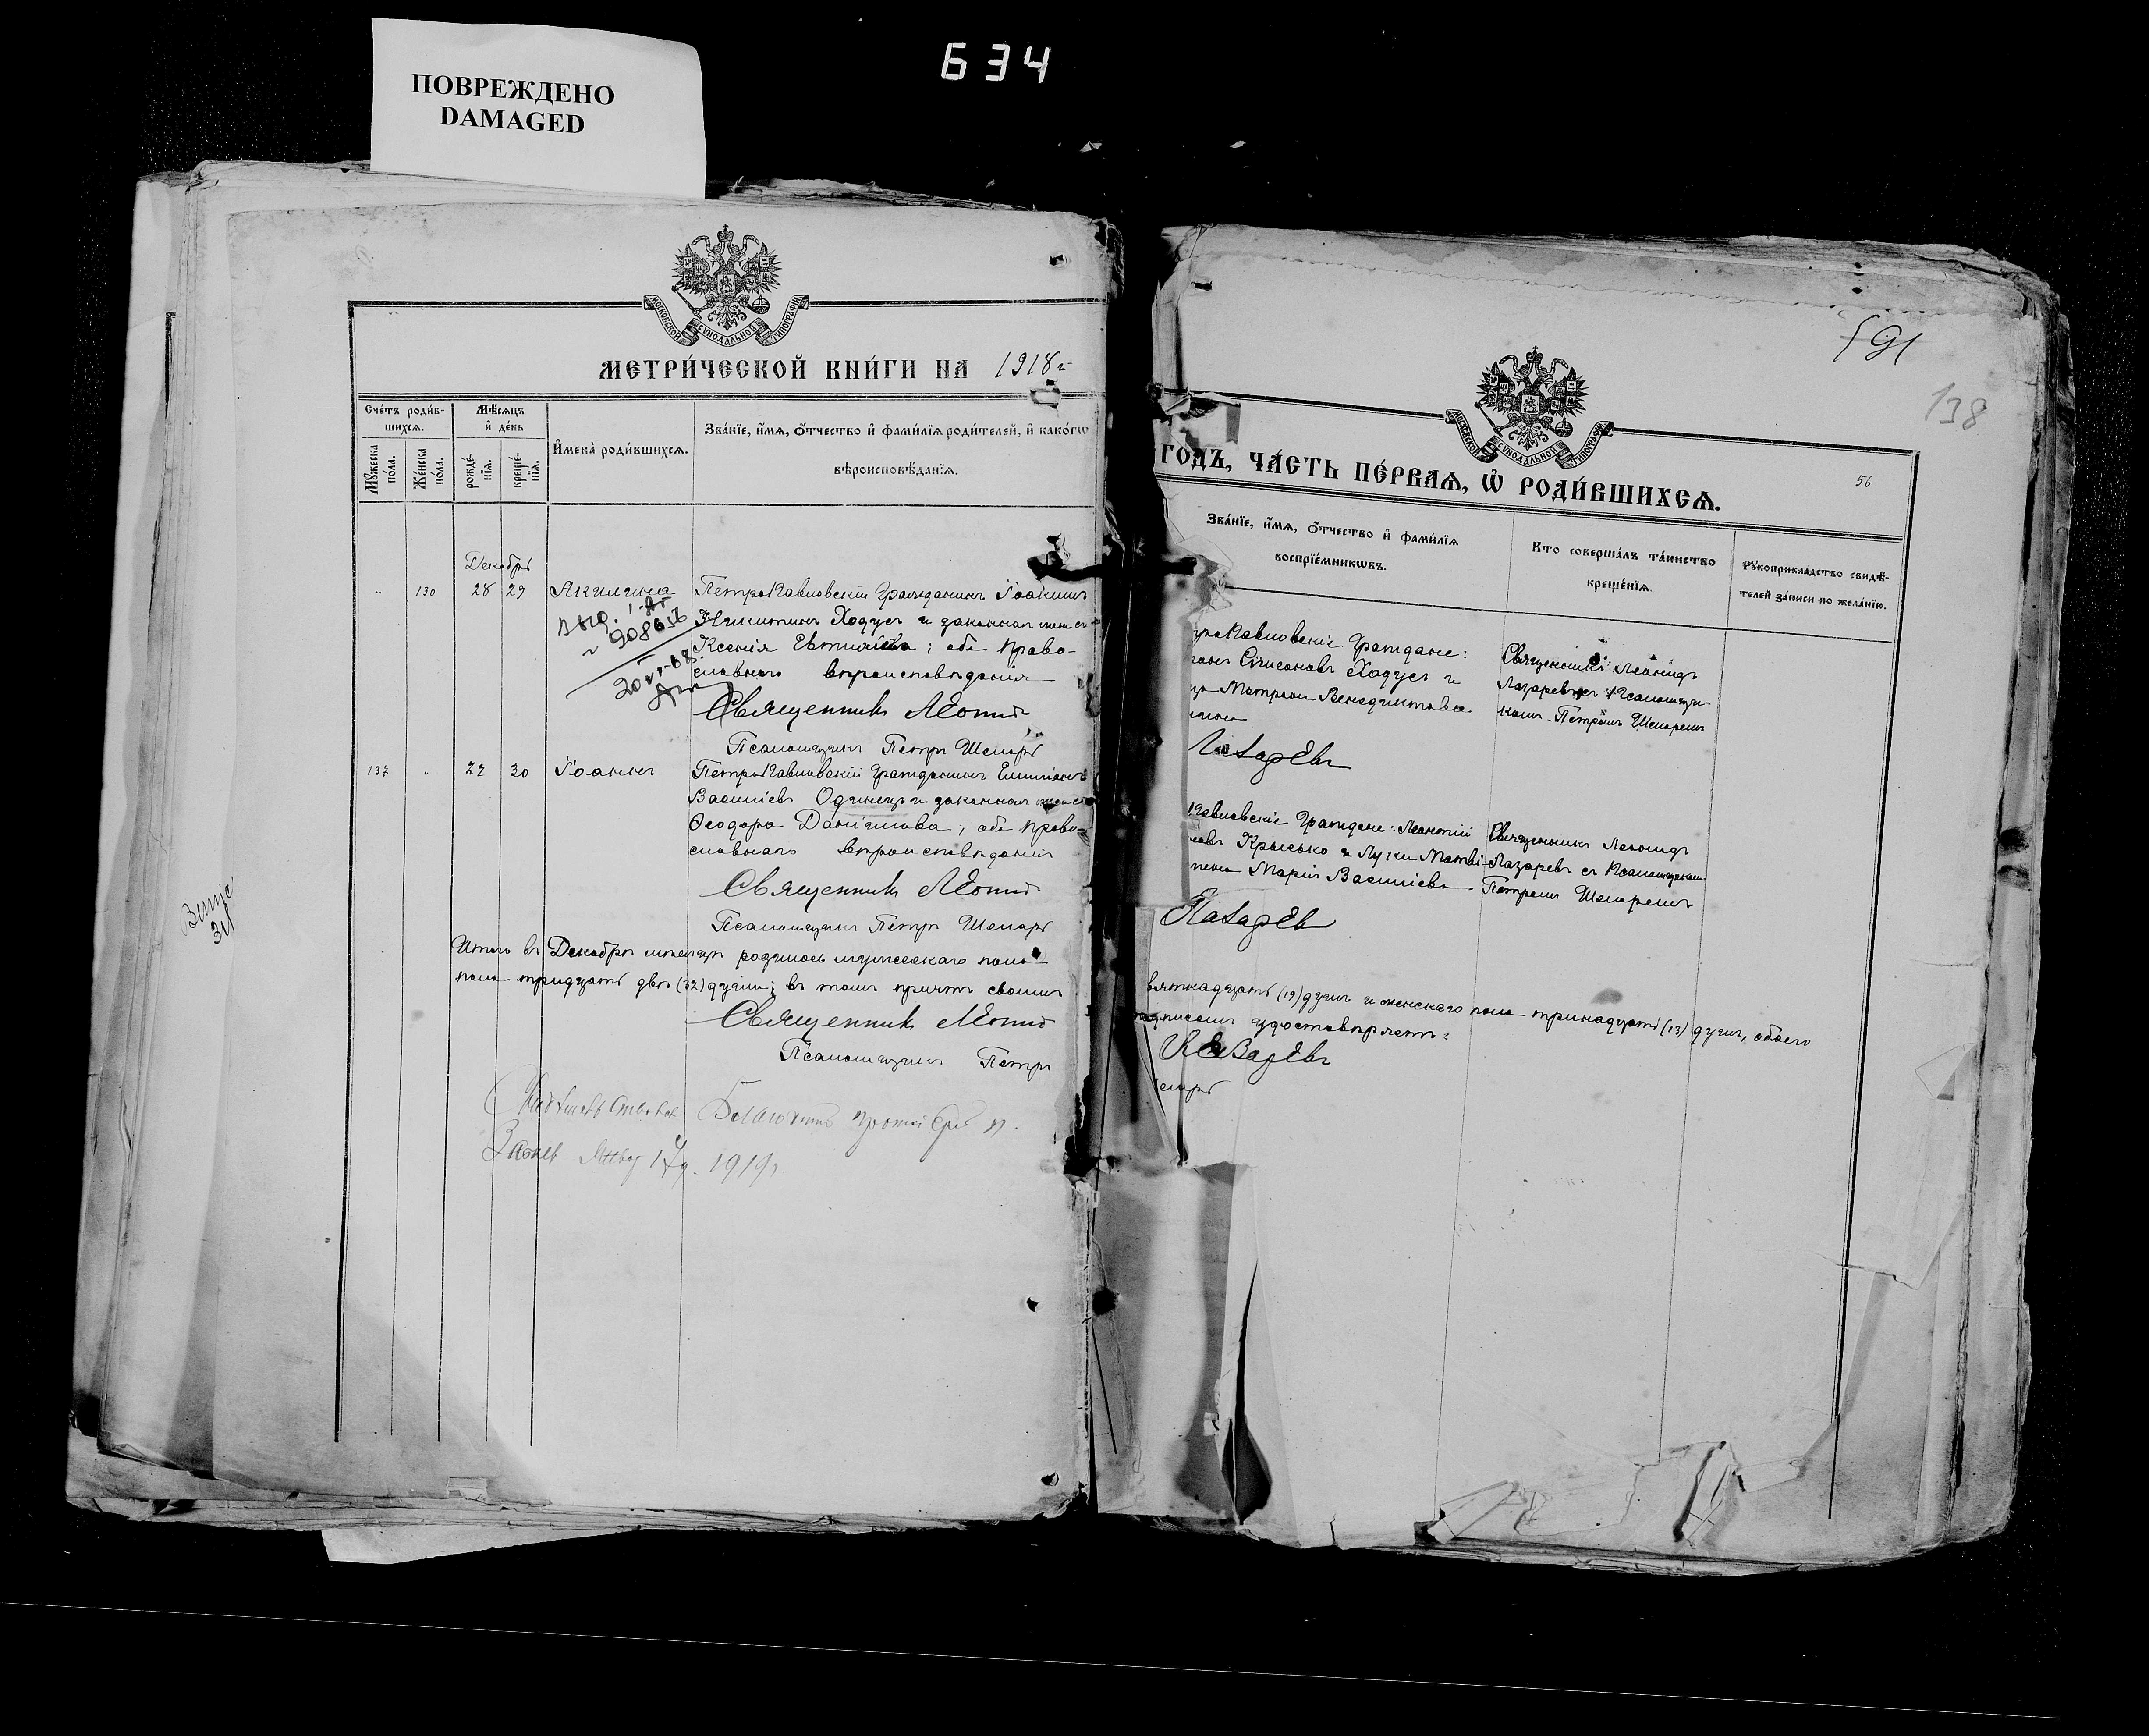 634
ПОВРЕЖДЕНО
DAMAGED
МОСКОВСКОЙ СѴНОДАЛЬНОЙ ТИПОГРАФІИ
МЕТРИ́ЧЕСКОЙ КНИ́ГИ НА 1918 г
Сче́тъ роди́в-
шихсѧ.
Мꙋ́жеска пола.
Же́нска пола.
Мѣ́сѧцъ
и҆ де́нь
рожде́-
нїѧ.
креще́-
нїѧ.
И҆мена̀ роди́вшихсѧ.
Зва́нїе, и҆́мѧ, ѻ҆́тчество и҆ фами́лїѧ роди́телей, и҆ како́гѡ
вѣроисповѣ́данїѧ.
Декабрь
130 28 29 Акилина Петропавловскій Гражданинъ Іоакимъ
Никитинъ Ходусъ и законная жена его
Ксенія Евтихіева; оба право-
славнаго вѣроисповѣданія
908656
Священникъ Леонид
Псаломщикъ Петръ Шепаръ
137 " 29 30 Іоаннъ Петропавловскій Гражданинъ Емиліанъ
Василіевъ Одинецъ и законная жена его
Ѳеодора Даніилова; оба право-
славнаго вѣроисповѣданія
Священникъ Леонид
Псаломщикъ Петръ Шепаръ
Итого въ Декабрѣ мѣсяцѣ родилось мужескаго пола
пола тридцать двѣ (32) души; въ томъ причтъ своимъ
Священникъ Леонид
Псаломщикъ Петръ
Благочин протоіерей П.
1919 г.
591
138
МОСКОВСКОЙ СѴНОДАЛЬНОЙ ТИПОГРАФІИ
ГОДЪ, ЧА́СТЬ ПЕ́РВАѦ, Ѡ҆ РОДИ́ВШИХСѦ.
56
Зва́нїе, и҆́мѧ, ѻ҆́тчество и҆ фами́лїѧ
воспрїе́мникѡвъ.
Кто соверша́лъ та́инство
креще́нїѧ.
Рꙋкоприкладство свидѣ́-
телей за́писи по жела́нїю.
павловскіе Граждане:
Сѵмеоновъ Ходусъ и
Матрона Венедиктова
Священникъ Леонидъ
Лазаревъ съ Псаломщи-
комъ Петромъ Шепаремъ
Лазаревъ
павловскіе Граждане: Леонтій
Крысько и Луки Матві
жена Марія Василіева
Священникъ Леонидъ
Лазаревъ съ Псаломщикомъ
Петромъ Шепаремъ
Лазаревъ
вятнадцать (19) душъ и женскаго пола тринадцать (13) душъ, обоего
подписомъ удостовѣряетъ:
Лазаревъ
епаръ